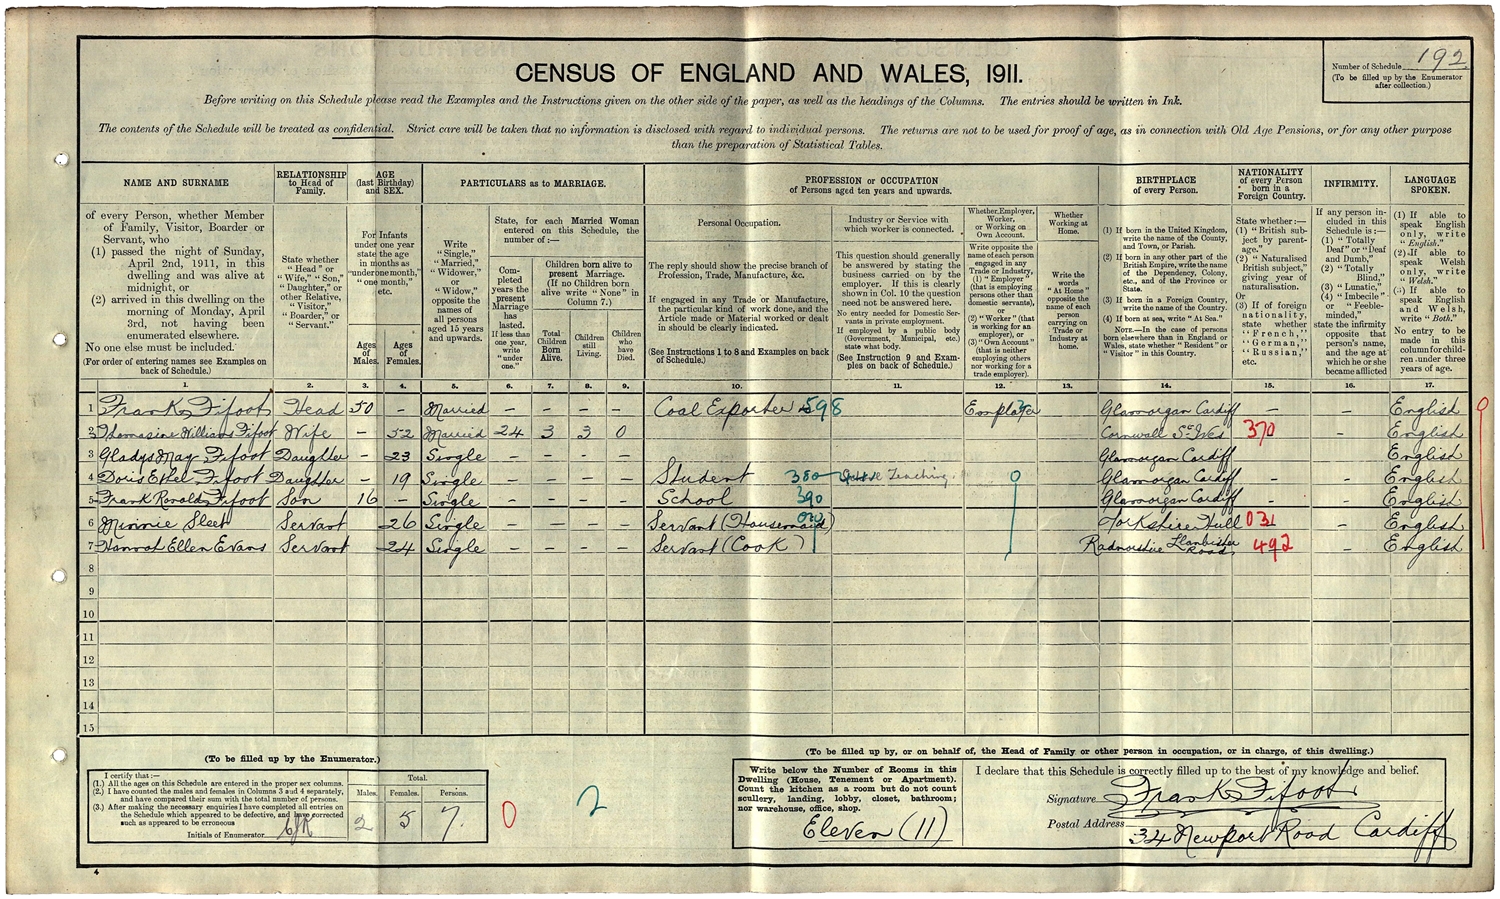 CENSUS OF ENGLAND AND WALES, 1911.
Number of Schedule 192
(To be filled up by the Enumerator
after collection.)
Before writing on this Schedule please read the Examples and the Instructions given on the other side of the paper, as well as the headings of the Columns. The entries should be written in Ink.
The contents of the Schedule will be treated as confidential. Strict care will be taken that no information is disclosed with regard to individual persons. The returns are not to be used for proof of age, as in connection with Old Age Pensions, or for any other purpose
than the preparation of Statistical Tables.
NAME AND SURNAME
of every Person, whether Member
of Family, Visitor, Boarder or
Servant, who
(1) passed the night of Sunday,
April 2nd, 1911, in this
dwelling and was alive at
midnight, or
(2) arrived in this dwelling on the
morning of Monday, April
3rd, not having been
enumerated elsewhere.
No one else must be included.
(For order of entering names see Examples on
back of Schedule.)
RELATIONSHIP
to Head of
Family.
State whether
"Head" or
"Wife," "Son,"
"Daughter," or
other Relative,
"Visitor,"
"Boarder," or
"Servant."
AGE
(last Birthday)
and SEX.
For Infants
under one year
state the age
in months as
"under one month,"
"one month,"
etc.
Ages
of
Males.
Ages
of
Females.
PARTICULARS as to MARRIAGE.
Write
"Single,"
"Married,"
"Widower,"
or
"Widow,"
opposite the
names of
all persons
aged 15 years
and upwards.
State, for each Married Woman
entered on this Schedule, the
number of:—
Completed
years the
present
Marriage
has
lasted.
If less than
one year,
write
"under
one."
Children born alive to
present Marriage.
(If no children born
alive write "None" in
Column 7.)
Total
Children
Born
Alive.
Children
still
Living.
Children
who
have
Died.
PROFESSION or OCCUPATION
of Persons aged ten years and upwards.
Personal Occupation.
The reply should show the precise branch of
Profession, Trade, Manufacture, &c.
If engaged in any Trade or Manufacture,
the particular kind of work done, and the
Article made or Material worked or dealt
in should be clearly indicated.
(See Instructions 1 to 8 and Examples on back
of Schedule.)
Industry or Service with
which worker is connected.
This question should generally
be answered by stating the
business carried on by the
employer. If this is clearly
shown in Col. 10 the question
need not be answered here.
No entry needed for Domestic Servants
in private employment.
If employed by a public body
(Government, Municipal, etc.)
state what body.
(See Instruction 9 and Examples
on back of Schedule.)
Whether Employer,
Worker,
or Working on
Own Account.
Write opposite the
name of each person
engaged in any
Trade or Industry,
(1) "Employer"
(that is employing
persons other than
domestic servants),
or
(2) "Worker" (that
is working for an
employer), or
(3) "Own Account"
(that is neither
employing others
nor working for a
trade employer).
Whether
Working at
Home.
Write the
words
"At Home"
opposite the
name of each
person
carrying on
Trade or
Industry at
home.
BIRTHPLACE
of every Person.
(1) If born in the United Kingdom,
write the name of the County,
and Town, or Parish.
(2) If born in any other part of the
British Empire, write the name
of the Dependency, Colony,
etc., and of the Province or
State.
(3) If born in a Foreign Country,
write the name of the Country.
(4) If born at sea, write "At Sea."
NOTE.—In the case of persons
born elsewhere than in England or
Wales, state whether "Resident" or
"Visitor" in this Country.
NATIONALITY
of every Person
born in a
Foreign Country.
State whether:—
(1) "British subject
by parentage."
(2) "Naturalised
British subject,"
giving year of
naturalisation.
Or
(3) If of foreign
nationality,
state whether
"French,"
"German,"
"Russian,"
etc.
INFIRMITY.
If any person included
in this
Schedule is:—
(1) "Totally
Deaf" or "Deaf
and Dumb,"
(2) "Totally
Blind,"
(3) "Lunatic,"
(4) "Imbecile"
or "Feeble-
minded,"
state the infirmity
opposite that
person's name,
and the age at
which he or she
became afflicted
LANGUAGE
SPOKEN.
(1) If able to
speak English
only, write
"English."
(2) If able to
speak Welsh
only, write
"Welsh."
(3) If able to
speak English
and Welsh,
write "Both."
No entry to be
made in this
column for children
under three
years of age.
1. 2. 3. 4. 5. 6. 7. 8. 9. 10. 11. 12. 13. 14. 15. 16. 17.
1 Frank Fifoot Head 50 – Married – – – – Coal Exporter 598 Employer Glamorgan Cardiff – – English
2 Thomasine Williams Fifoot Wife – 52 Married 24 3 3 0 Cornwall St Ives 370 – English
3 Gladys May Fifoot Daughter – 23 Single – – – – Glamorgan Cardiff English
4 Doris Ethel Fifoot Daughter – 19 Single – – – – Student 380 Teaching. Glamorgan Cardiff – – English
5 Frank Ronald Fifoot Son 16 – Single – – – – School 390 Glamorgan Cardiff – – English
6 Minnie Sleet Servant 26 Single – – – – Servant (Housemaid) Yorkshire Hull 031 – English
7 Hannah Ellen Evans Servant 24 Single – – – – Servant (Cook) Radnorshire Llanbister Road 492 – English
8
9
10
11
12
13
14
15
(To be filled up by the Enumerator.)
I certify that:—
(1.) All the ages on this Schedule are entered in the proper sex columns.
(2.) I have counted the males and females in Columns 3 and 4 separately,
and have compared their sum with the total number of persons.
(3.) After making the necessary enquiries I have completed all entries on
the Schedule which appeared to be defective, and have corrected
such as appeared to be erroneous
Initials of Enumerator
Total.
Males. Females. Persons.
2 5 7.
0 2
(To be filled up by, or on behalf of, the Head of Family or other person in occupation, or in charge, of this dwelling.)
Write below the Number of Rooms in this
Dwelling (House, Tenement or Apartment).
Count the kitchen as a room but do not count
scullery, landing, lobby, closet, bathroom;
nor warehouse, office, shop.
Eleven (11)
I declare that this Schedule is correctly filled up to the best of my knowledge and belief.
Signature Frank Fifoot
Postal Address 34 Newport Road Cardiff
4